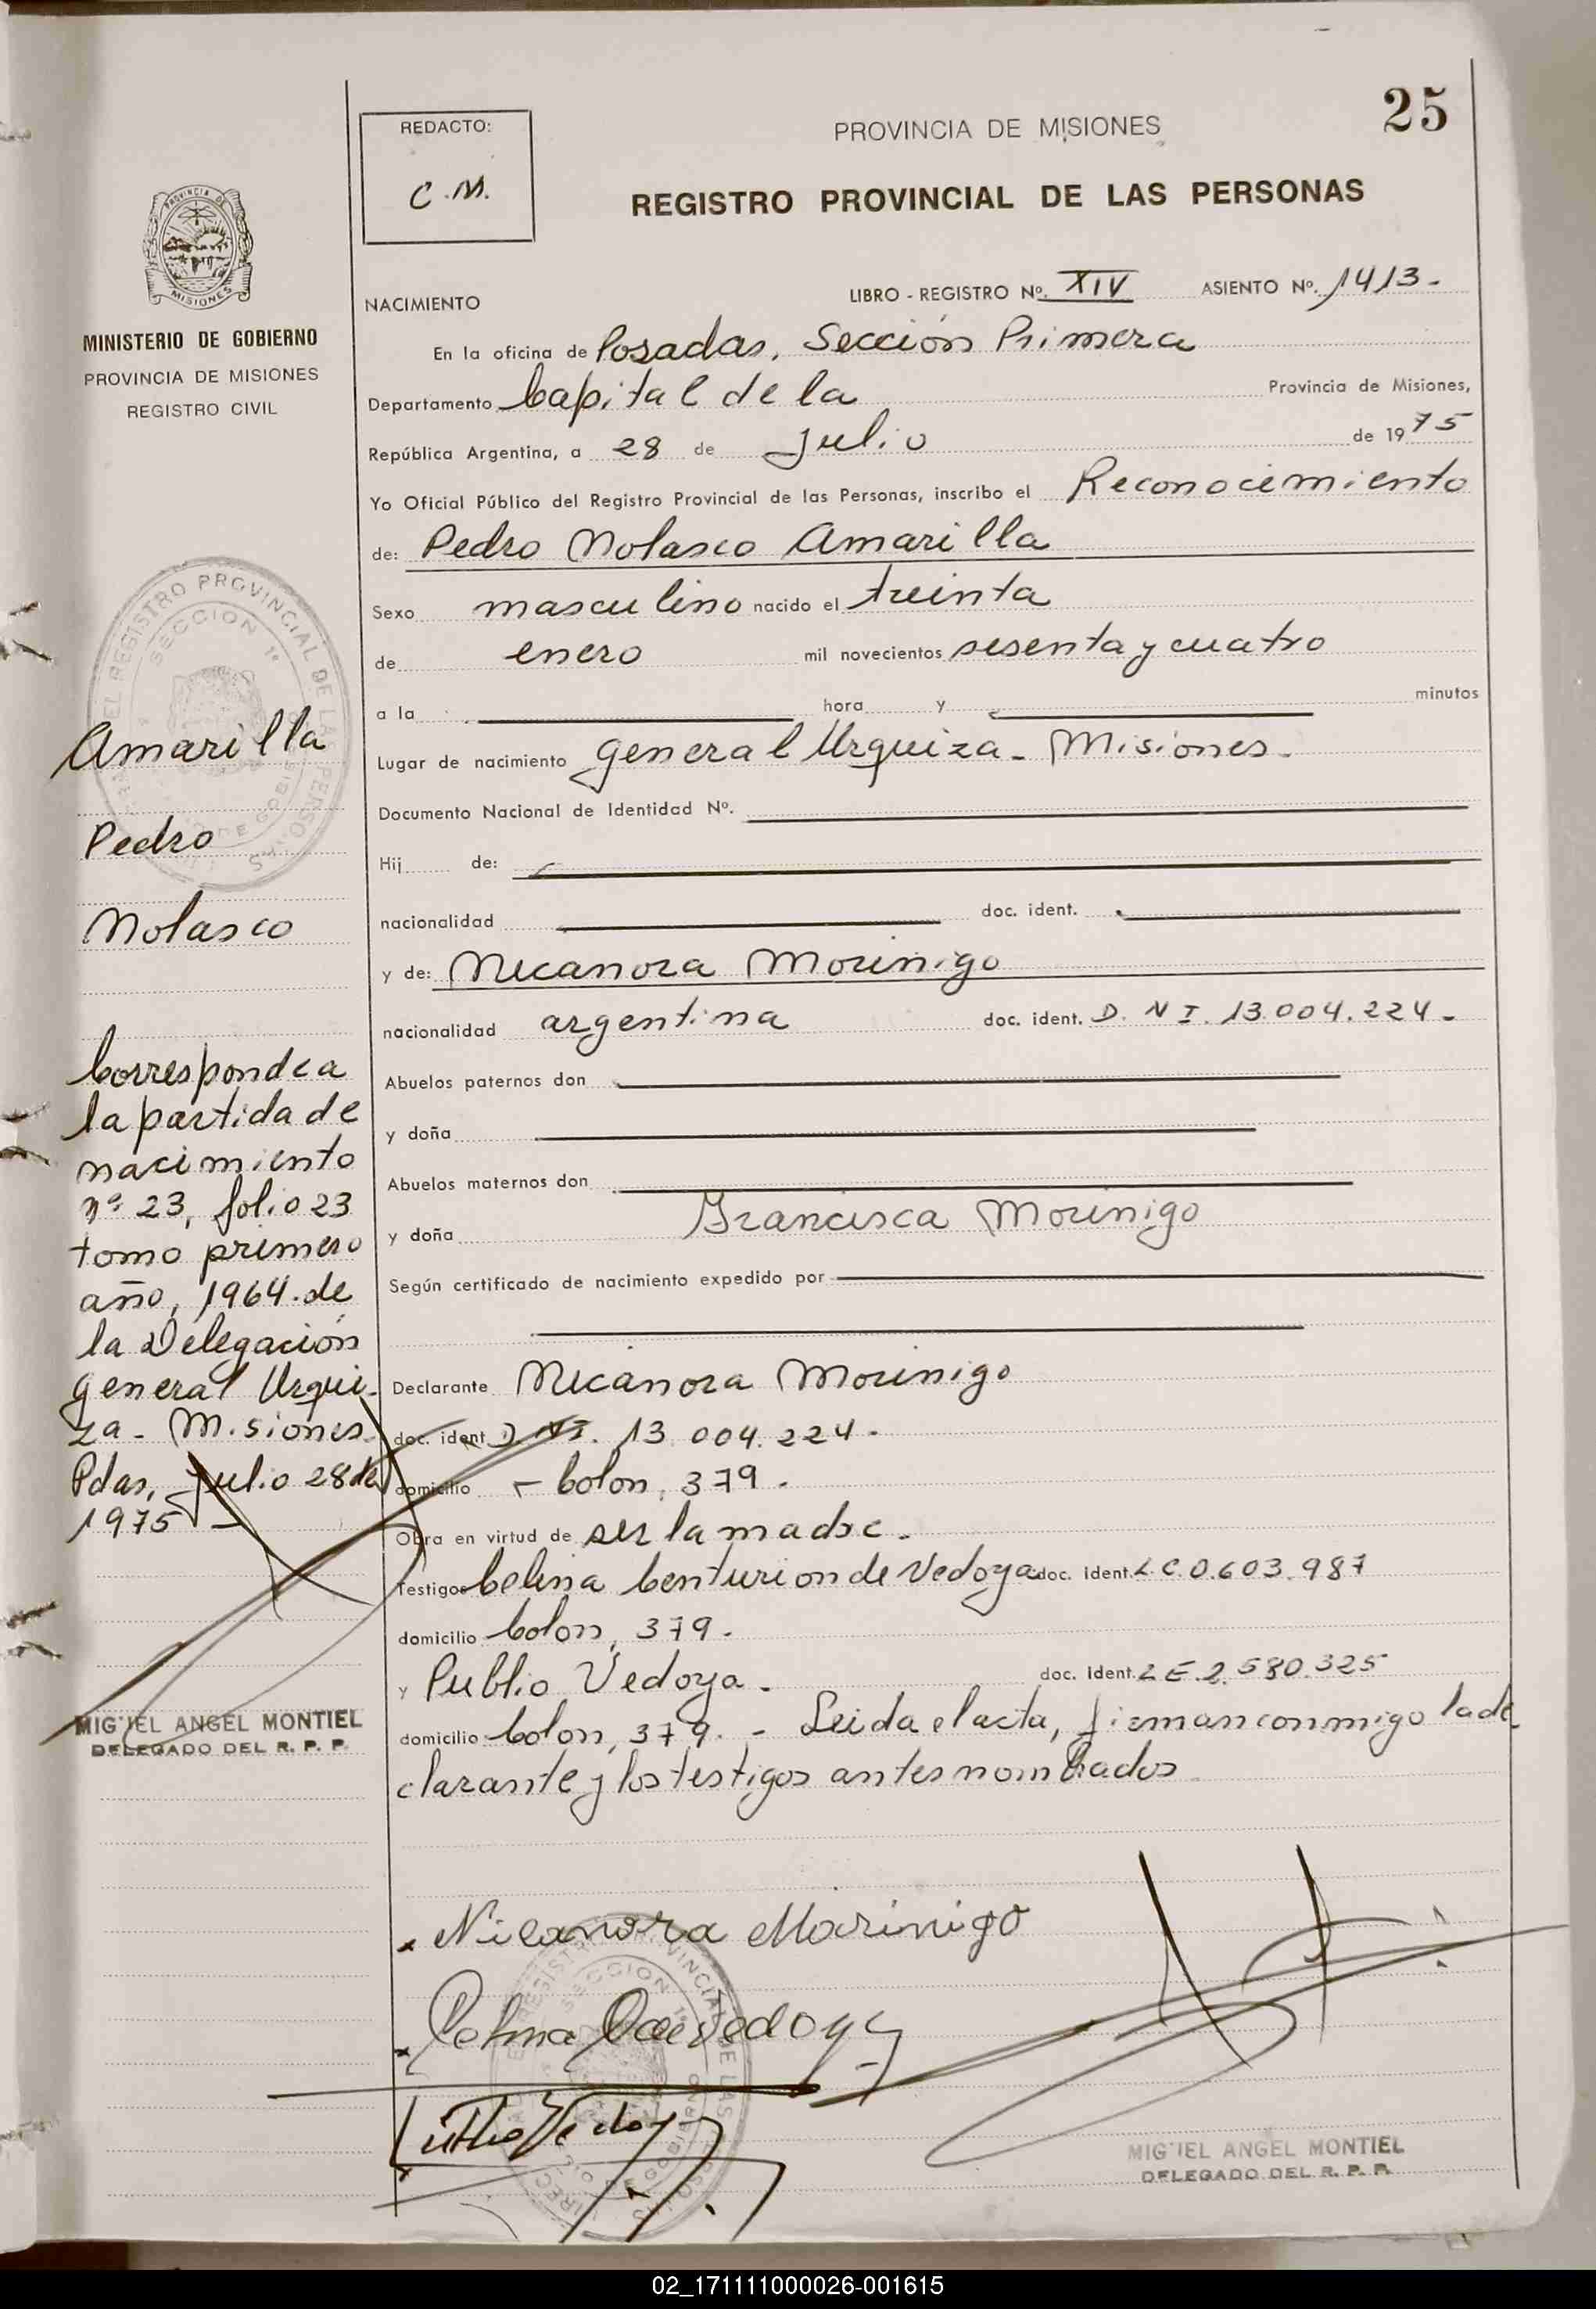 25
REDACTO:
C.M.
PROVINCIA DE MISIONES
REGISTRO PROVINCIAL DE LAS PERSONAS
MINISTERIO DE GOBIERNO
PROVINCIA DE MISIONES
REGISTRO CIVIL
NACIMIENTO
LIBRO - REGISTRO Nº. XIV ASIENTO Nº. 1413.-
En la oficina de Posadas, Sección Primera
Departamento Capital de la Provincia de Misiones,
República Argentina, a 28 de Julio de 1975
Yo Oficial Público del Registro Provincial de las Personas, inscribo el Reconocimiento
de: Pedro Nolasco Amarilla
Sexo masculino nacido el treinta
de enero mil novecientos sesenta y cuatro
a la hora y minutos
Lugar de nacimiento General Urquiza - Misiones.
Documento Nacional de Identidad Nº.
Hij de:
nacionalidad doc. ident.
y de: Nicanora Morinigo
nacionalidad argentina doc. ident. D.N I. 13.004.224.-
Abuelos paternos don
y doña
Abuelos maternos don
y doña Francisca Morinigo
Según certificado de nacimiento expedido por
Declarante Nicanora Morinigo
doc. ident D NI. 13.004.224.
domicilio - Colon, 379.
Obra en virtud de ser la madre.
Testigos Celina Centurion de Vedoya doc. ident. L C.0.603.987
domicilio Colon, 379.
y Publio Vedoya. doc. ident. L E.2.580.325
domicilio: Colon, 379. - Leida el acta, firman conmigo la de
clarante y los testigos antes nombrados
Amarilla
Pedro
Nolasco
Corresponde a
la partida de
nacimiento
nº 23, folio 23
tomo primero
año, 1964. de
la Delegación
General Urqui-
za - Misiones.
Pdas, Julio 28 de
1975 -
MIGUEL ANGEL MONTIEL
DELEGADO DEL R. P. P.
Nicanora Morinigo
MIGUEL ANGEL MONTIEL
DELEGADO DEL R. P. P.
02_171111000026-001615